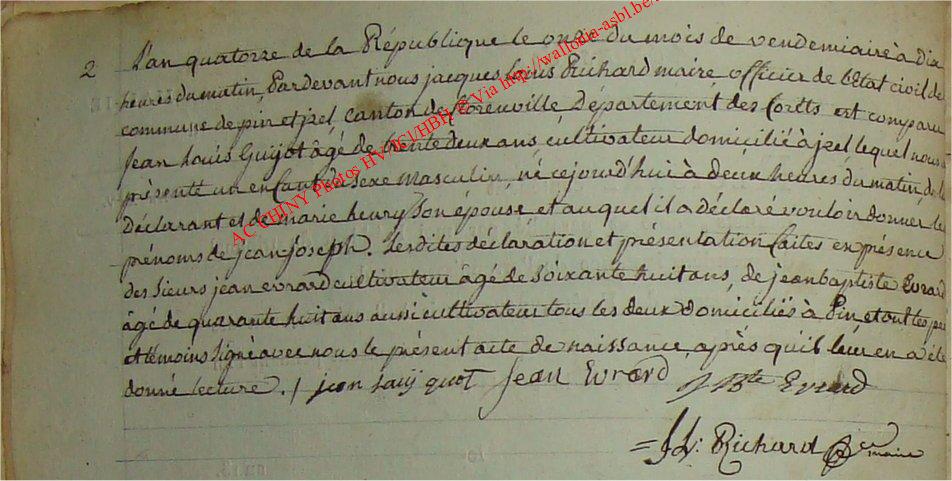 2 L'an quatorze de la République le onze du mois de vendemiaire à dix
heures du matin, Pardevant nous jacques Louis Richard maire officier de l'Etat civil de
commune de pin et izel canton de florenville Département des forêts est comparu
jean Louis Guijot âgé de trente deux ans, cultivateur domicilié à izel lequel nous
présenté un enfant du Sexe masculin, né ce jourd'hui à deux heures du matin, de
Déclarant et de marie henry Son épouse, et auquel il a déclaré vouloir donner le
prénoms de jean joseph. Lesdites déclaration et présentation faites en présence
des Sieurs jean evrard cultivateur âgé de Soixante huit ans, de jean baptiste Evrard
âgé de quarante huit ans aussi cultivateur tous les deux domiciliés à Pin, et ont les
et témoins Signé avec nous le présent acte de naissance, après qu'il leur en a été
donné lecture. / jean Evrard J Bte Evrard
= JL: Richard maire
AC CHINY Photos Via http://wallodia-asbl.be/